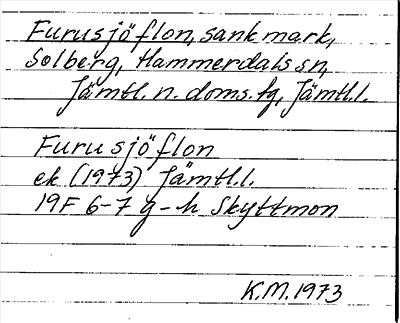 Furusjöflon, sank mark,
Solberg, Hammerdals sn,
Jämtl. n. doms. tg, Jämtl.l.
Furusjöflon
ek (1973) Jämtl.l.
19F 6-7 g-h Skyttmon
K.M. 1973